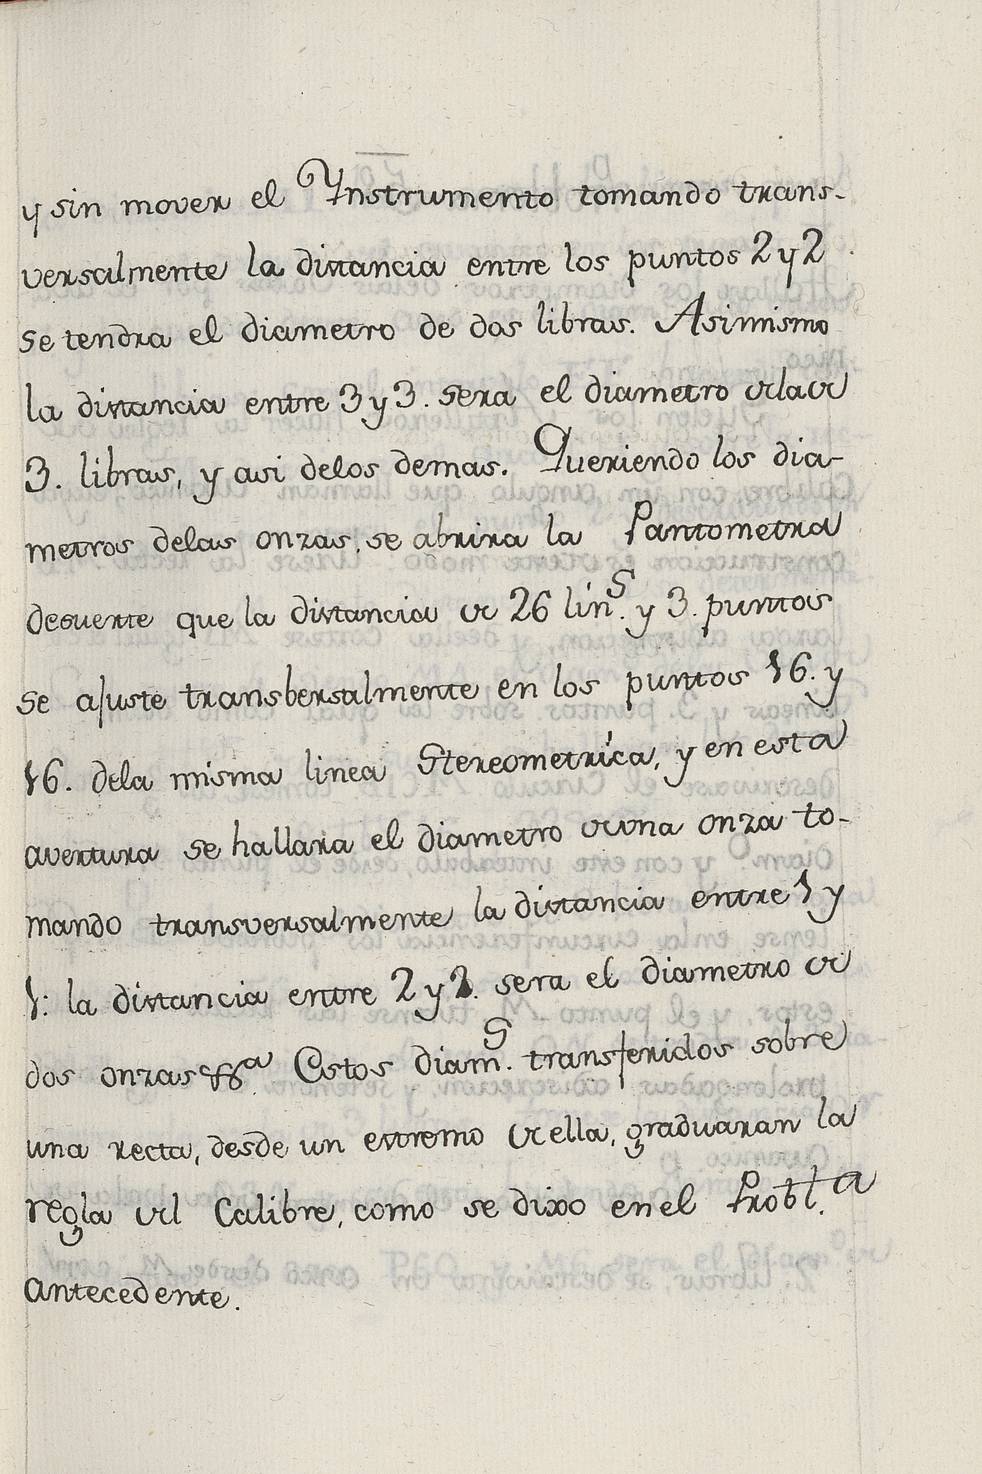 y sin mover el Ynstrumento tomando trans-
versalmente la distancia entre los puntos 2 y 2
se tendra el diametro de dos libras. Asimismo
la distancia entre 3 y 3. sera el diametro de la de
3. libras, y asi delos demas. Queriendo los dia-
metros delas onzas, se abrira la Pantometra
desuerte que la distancia de 26 lin.s y 3. puntos
se ajuste transbersalmente en los puntos 16. y
16. dela misma linea Stereometrica, y en esta
avertura se hallara el diametro de una onza to-
mando transversalmente la distancia entre 1 y
1: la distancia entre 2 y 2. sera el diametro de
dos onzas &a Estos diam.s transferidos sobre
una recta, desde un extremo de ella, graduaran la
regla del Calibre, como se dixo en el Probl.a
antecedente.